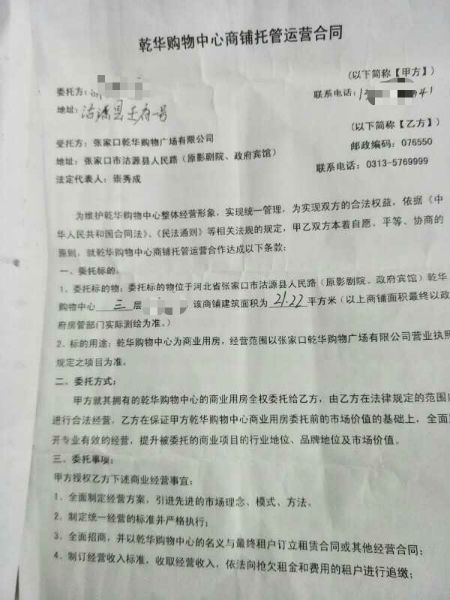 乾华购物中心商铺托管运营合同
(以下简称【甲方】)
委托方:
联系电话: 41
地址: 沽源县王府号
(以下简称【乙方】)
受托方: 张家口乾华购物广场有限公司
邮政编码: 076550
地址: 张家口市沽源县人民路(原影剧院、政府宾馆)
联系电话: 0313-5769999
法定代表人: 崇秀成
为维护乾华购物中心整体经营形象,实现统一管理,为实现双方的合法权益,依据《中
华人民共和国合同法》、《民法通则》等相关法规的规定,甲乙双方本着自愿、平等、协商的
原则,就乾华购物中心商铺托管运营合作达成以下条款:
一、委托标的:
1、委托标的物: 委托标的物位于河北省张家口市沽源县人民路(原影剧院、政府宾馆)乾华
购物中心 三 层 该商铺建筑面积为 21.22 平方米(以上商铺面积最终以政
府房管部门实际测绘为准。)
2、标的用途: 乾华购物中心为商业用房,经营范围以张家口乾华购物广场有限公司营业执照
规定之项目为准。
二、委托方式:
甲方就其拥有的乾华购物中心的商业用房全权委托给乙方,由乙方在法律规定的范围
进行合法经营,乙方在保证甲方乾华购物中心商业用房委托前的市场价值的基础上,全面
开专业有效的经营,提升被委托的商业项目的行业地位、品牌地位及市场价值。
三、委托事项:
甲方授权乙方下述商业经营事宜:
1、全面制定经营方案,引进先进的市场理念、模式、方法。
2、制定统一经营的标准并严格执行;
3、全面招商,并以乾华购物中心的名义与最终租户订立租赁合同或其他经营合同;
4、制订经营收入标准,收取经营收入,依法向抢欠租金和费用的租户进行追缴;